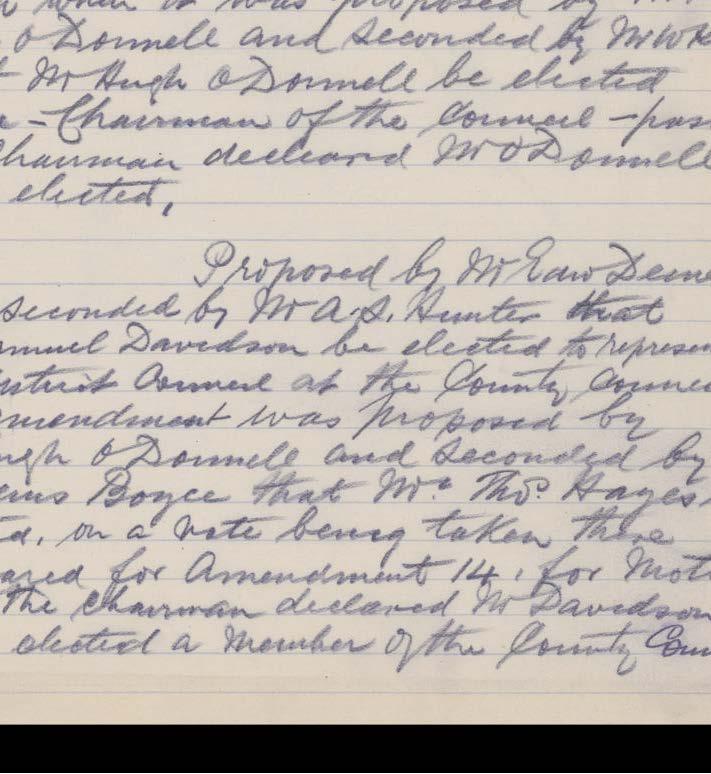 when it was proposed by
O'Donnell and seconded by Mr W
Mr Hugh O'Donnell be elected
-Chairman of the Council - pas
Chairman declared Mr O'Donnell
elected.
Proposed by Mr Edw Deme
seconded by Mr A. S. Hunter that
amuel Davidson be elected to represen
istrict Council at the County Counci
mendment was proposed by
ugh O'Donnell and seconded by
Boyce that Mr. Thos Hayes
ed, on a vote being taken there
ared for Amendment 14, for Moti
the Chairman declared Mr Davidson
elected a Member of the County Coun